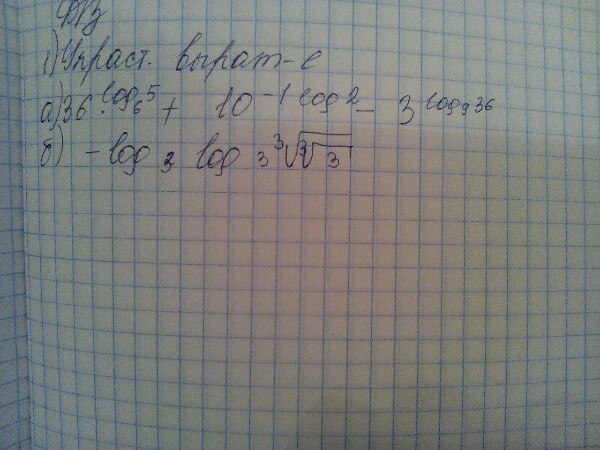 ДРЗ
1) Упраст. вырат-е
а) 36^{log_6 5} + 10^{-1 log 2} - 3^{log_9 36}
б) -log_3 log_3 ∛(∛3)